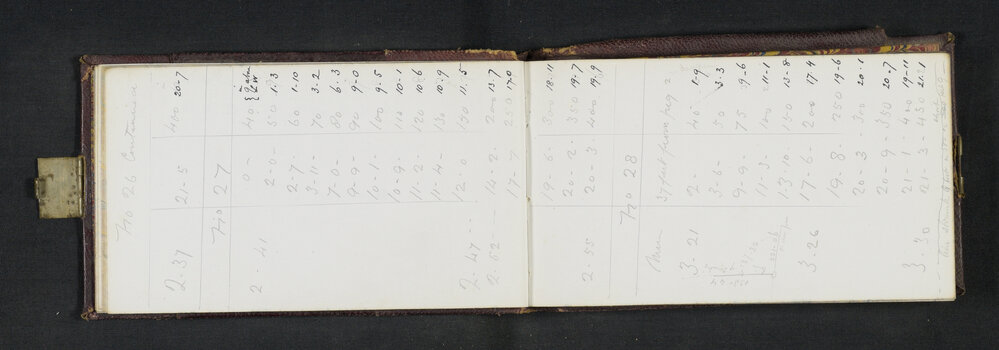 No 26 Continued
2.37 21-5 400 20-7
No 27
2.41 0- 40
2-0- 50 1-3
2-7- 60 1-10
3-11- 70 3-2
7-0- 80 6-3
9-9- 90 9-0
10-1- 100 9-5
10-9- 110 10-1
11-2- 120 10-6
11-4- 130 10-9
2.47 -- 12.0 11-5
2.52 -- 14-2- 200 13-7
17-7 250 17-0
19-6- 300 18-11
20-2- 350 19-7
2.55 20-3- 400 19-9
No 28
37 feet from peg 2
3.21 2- 40 1-9
3-6- 50 3-3
9-9- 75 9-6
11-3- 100 11-1
13-10- 150 13-8
3.26 17-6- 200 17-4
19-8- 250 19-6
20-3- 300 20-1
20-9- 350 20-7
21-1- 400 19-11
3.30 21-3- 450 21-1